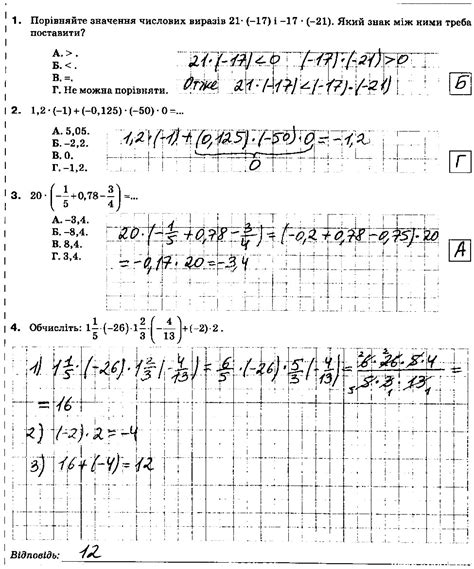 1. Порівняйте значення числових виразів 21 · (−17) і −17 · (−21). Який знак між ними треба
поставити?
А. > .
Б. < .
В. =.
Г. Не можна порівняти.
21 · (−17) < 0 (−17) · (−21) > 0
Отже 21 · (−17) < (−17) · (−21)
Б
2. 1,2 · (−1) + (−0,125) · (−50) · 0 =...
А. 5,05.
Б. −2,2.
В. 0.
Г. −1,2.
1,2 · (−1) + (0,125) · (−50) · 0 = −1,2
0
Г
3. 20 · (−1/5 + 0,78 − 3/4) =...
А. −3,4.
Б. −8,4.
В. 8,4.
Г. 3,4.
20 · (−1/5 + 0,78 − 3/4) = (−0,2 + 0,78 − 0,75) · 20
= −0,17 · 20 = −3,4
А
4. Обчисліть: 1 1/5 · (−26) · 1 2/3 · (−4/13) + (−2) · 2 .
1) 1 1/5 · (−26) · 1 2/3 (−4/13) = 6/5 · (−26) · 5/3 (−4/13) = 6 · 26 · 5 · 4 / 5 · 3 · 13 =
= 16
2) (−2) · 2 = −4
3) 16 + (−4) = 12
Відповідь: 12